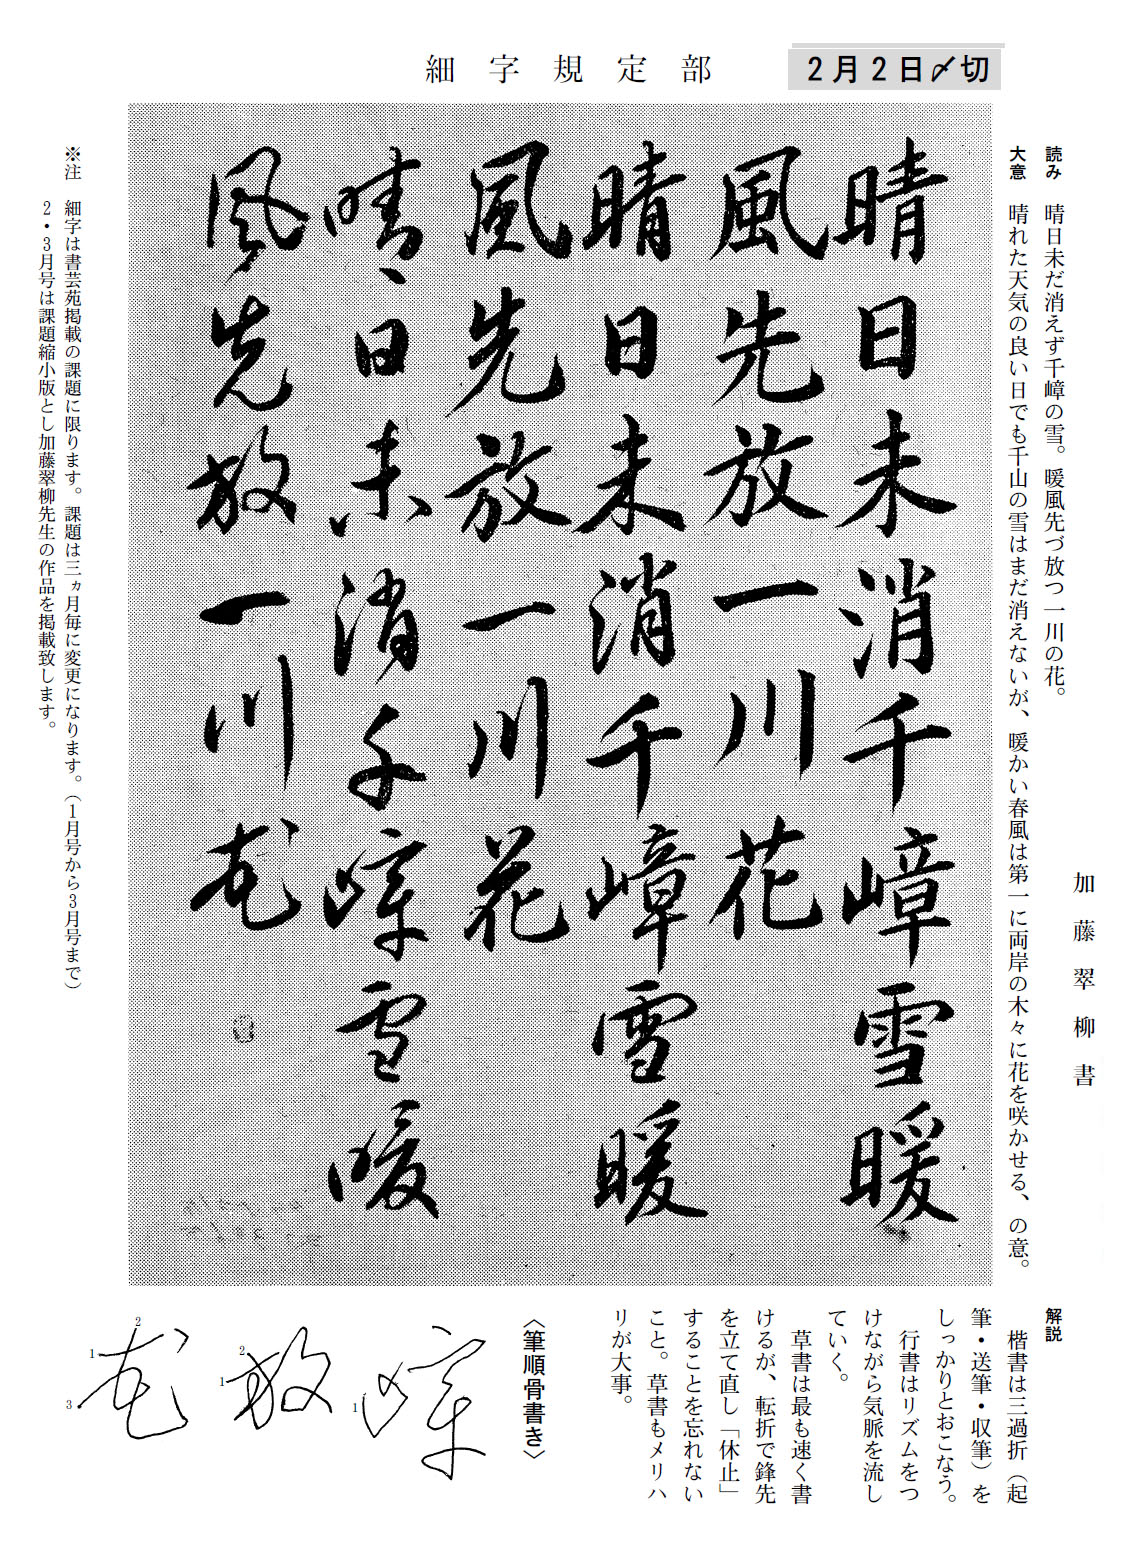 細字規定部
2月2日〆切
加藤翠柳書
読み 晴日未だ消えず千嶂の雪。暖風先づ放つ一川の花。
大意 晴れた天気の良い日でも千山の雪はまだ消えないが、暖かい春風は第一に両岸の木々に花を咲かせる、の意。
晴日未消千嶂雪暖
風先放一川花
晴日未消千嶂雪暖
風先放一川花
晴日未消千嶂雪暖
風先放一川花
※注 細字は書芸苑掲載の課題に限ります。課題は三ヵ月毎に変更になります。(1月号から3月号まで)
2・3月号は課題縮小版とし加藤翠柳先生の作品を掲載致します。
解説
楷書は三過折(起
筆・送筆・収筆)を
しっかりとおこなう。
行書はリズムをつ
けながら気脈を流し
ていく。
草書は最も速く書
けるが、転折で鋒先
を立て直し「休止」
することを忘れない
こと。草書もメリハ
リが大事。
〈筆順骨書き〉
嶂
1
放
1
2
花
1
2
3